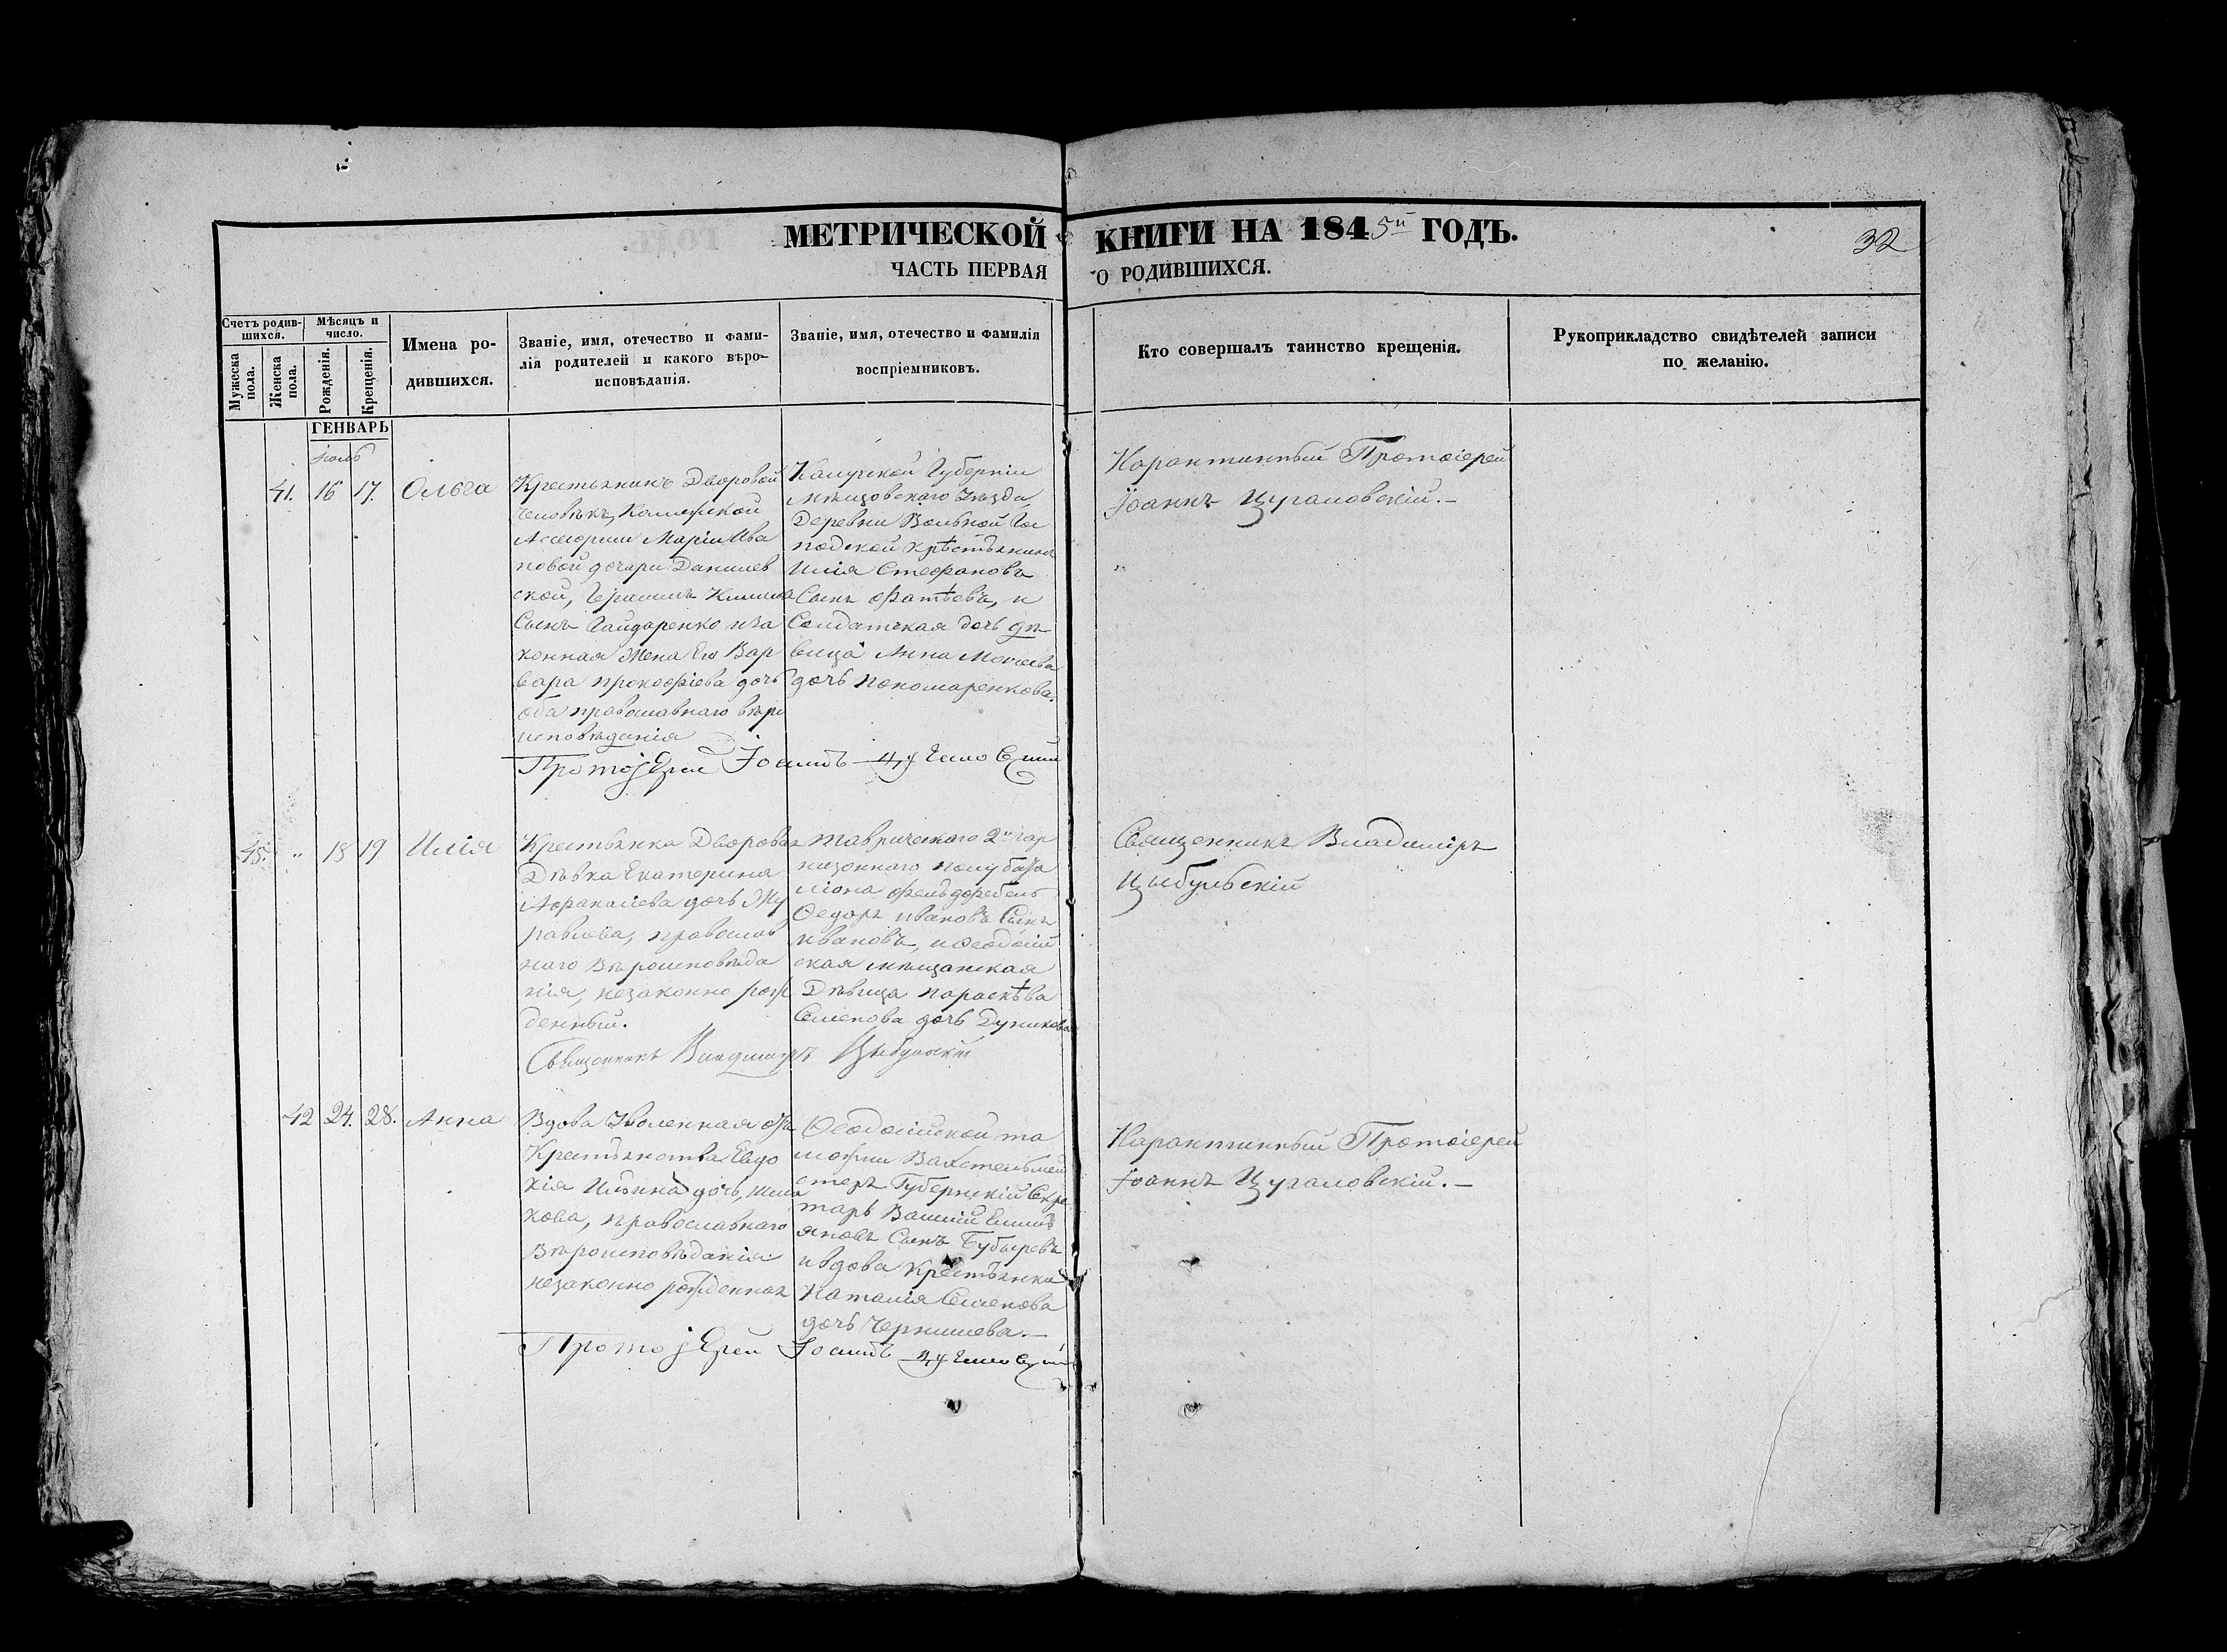 МЕТРИЧЕСКОЙ КНИГИ НА 1845й ГОДЪ.
32
ЧАСТЬ ПЕРВАЯ О РОДИВШИХСЯ.
Счетъ родив-
шихся.
Мужеска пола.
Женска пола.
Мѣсяцъ и число.
Рожденія.
Крещенія.
Имена ро-
дившихся.
Званіе, имя, отечество и фами-
лія родителей и какого вѣро-
исповѣданія.
Званіе, имя, отечество и фамилія
воспріемниковъ.
Кто совершалъ таинство крещенія.
Рукоприкладство свидѣтелей записи
по желанію.
ГЕНВАРЬ
41. 16 17. Ольга
Крестьянинъ Дворовой
Человѣкъ,
Маріи Ива
новой дочери Данилев
ской,
Сынъ Гайдаренко иза
конная Жена Его Вар
вара прокофіева дочь
оба православнаго вѣро
исповѣданія
Калужской Губерніи
Мѣщовскаго Уѣзда
Деревни Вольной
крѣстьянинъ
Илія Стефановъ
Сынъ Фатѣевъ, и
Солдатская дочь дѣ
вица Анна Моисѣева
дочь пономаренкова.
Карантинный Протоіерей
Іоаннъ Цугаловскій.-
ПротоjЕрей Іоаннъ
45. " 18 19 Илія
Крестьянка Дворовая
Дѣвка Екатерина
Афанасіева дочь Жу
равлева, православ
наго Вѣроисповѣда
нія, незаконно рож
денный.
Таврическаго 2й гар
низоннаго полубата
ліона фельдфебель
Федоръ ивановъ Сынъ
ивановъ, и Феодосій
ская мѣщанская
Дѣвица параскѣва
Семенова дочь Дуникова
Священникъ Владиміръ
Цыбульскій
Священникъ Владиміръ Цыбульскій
42 24. 28. Анна
Вдова Уволенная отъ
Крестьянства Евдо
кія Ильина дочь,
православнаго
Вѣроисповѣданія
незаконно рожденная
Феодосійской та
можни Вахтельмей
стеръ Губернскій Секре
тарь Василій Емилі
яновъ Сынъ Бубыревъ
и вдова Крестьянка
Наталія Семенова
дочь Чернишева.-
Карантинный Протоіерей
Іоаннъ Цугаловскій.-
ПротоjЕрей Іоаннъ